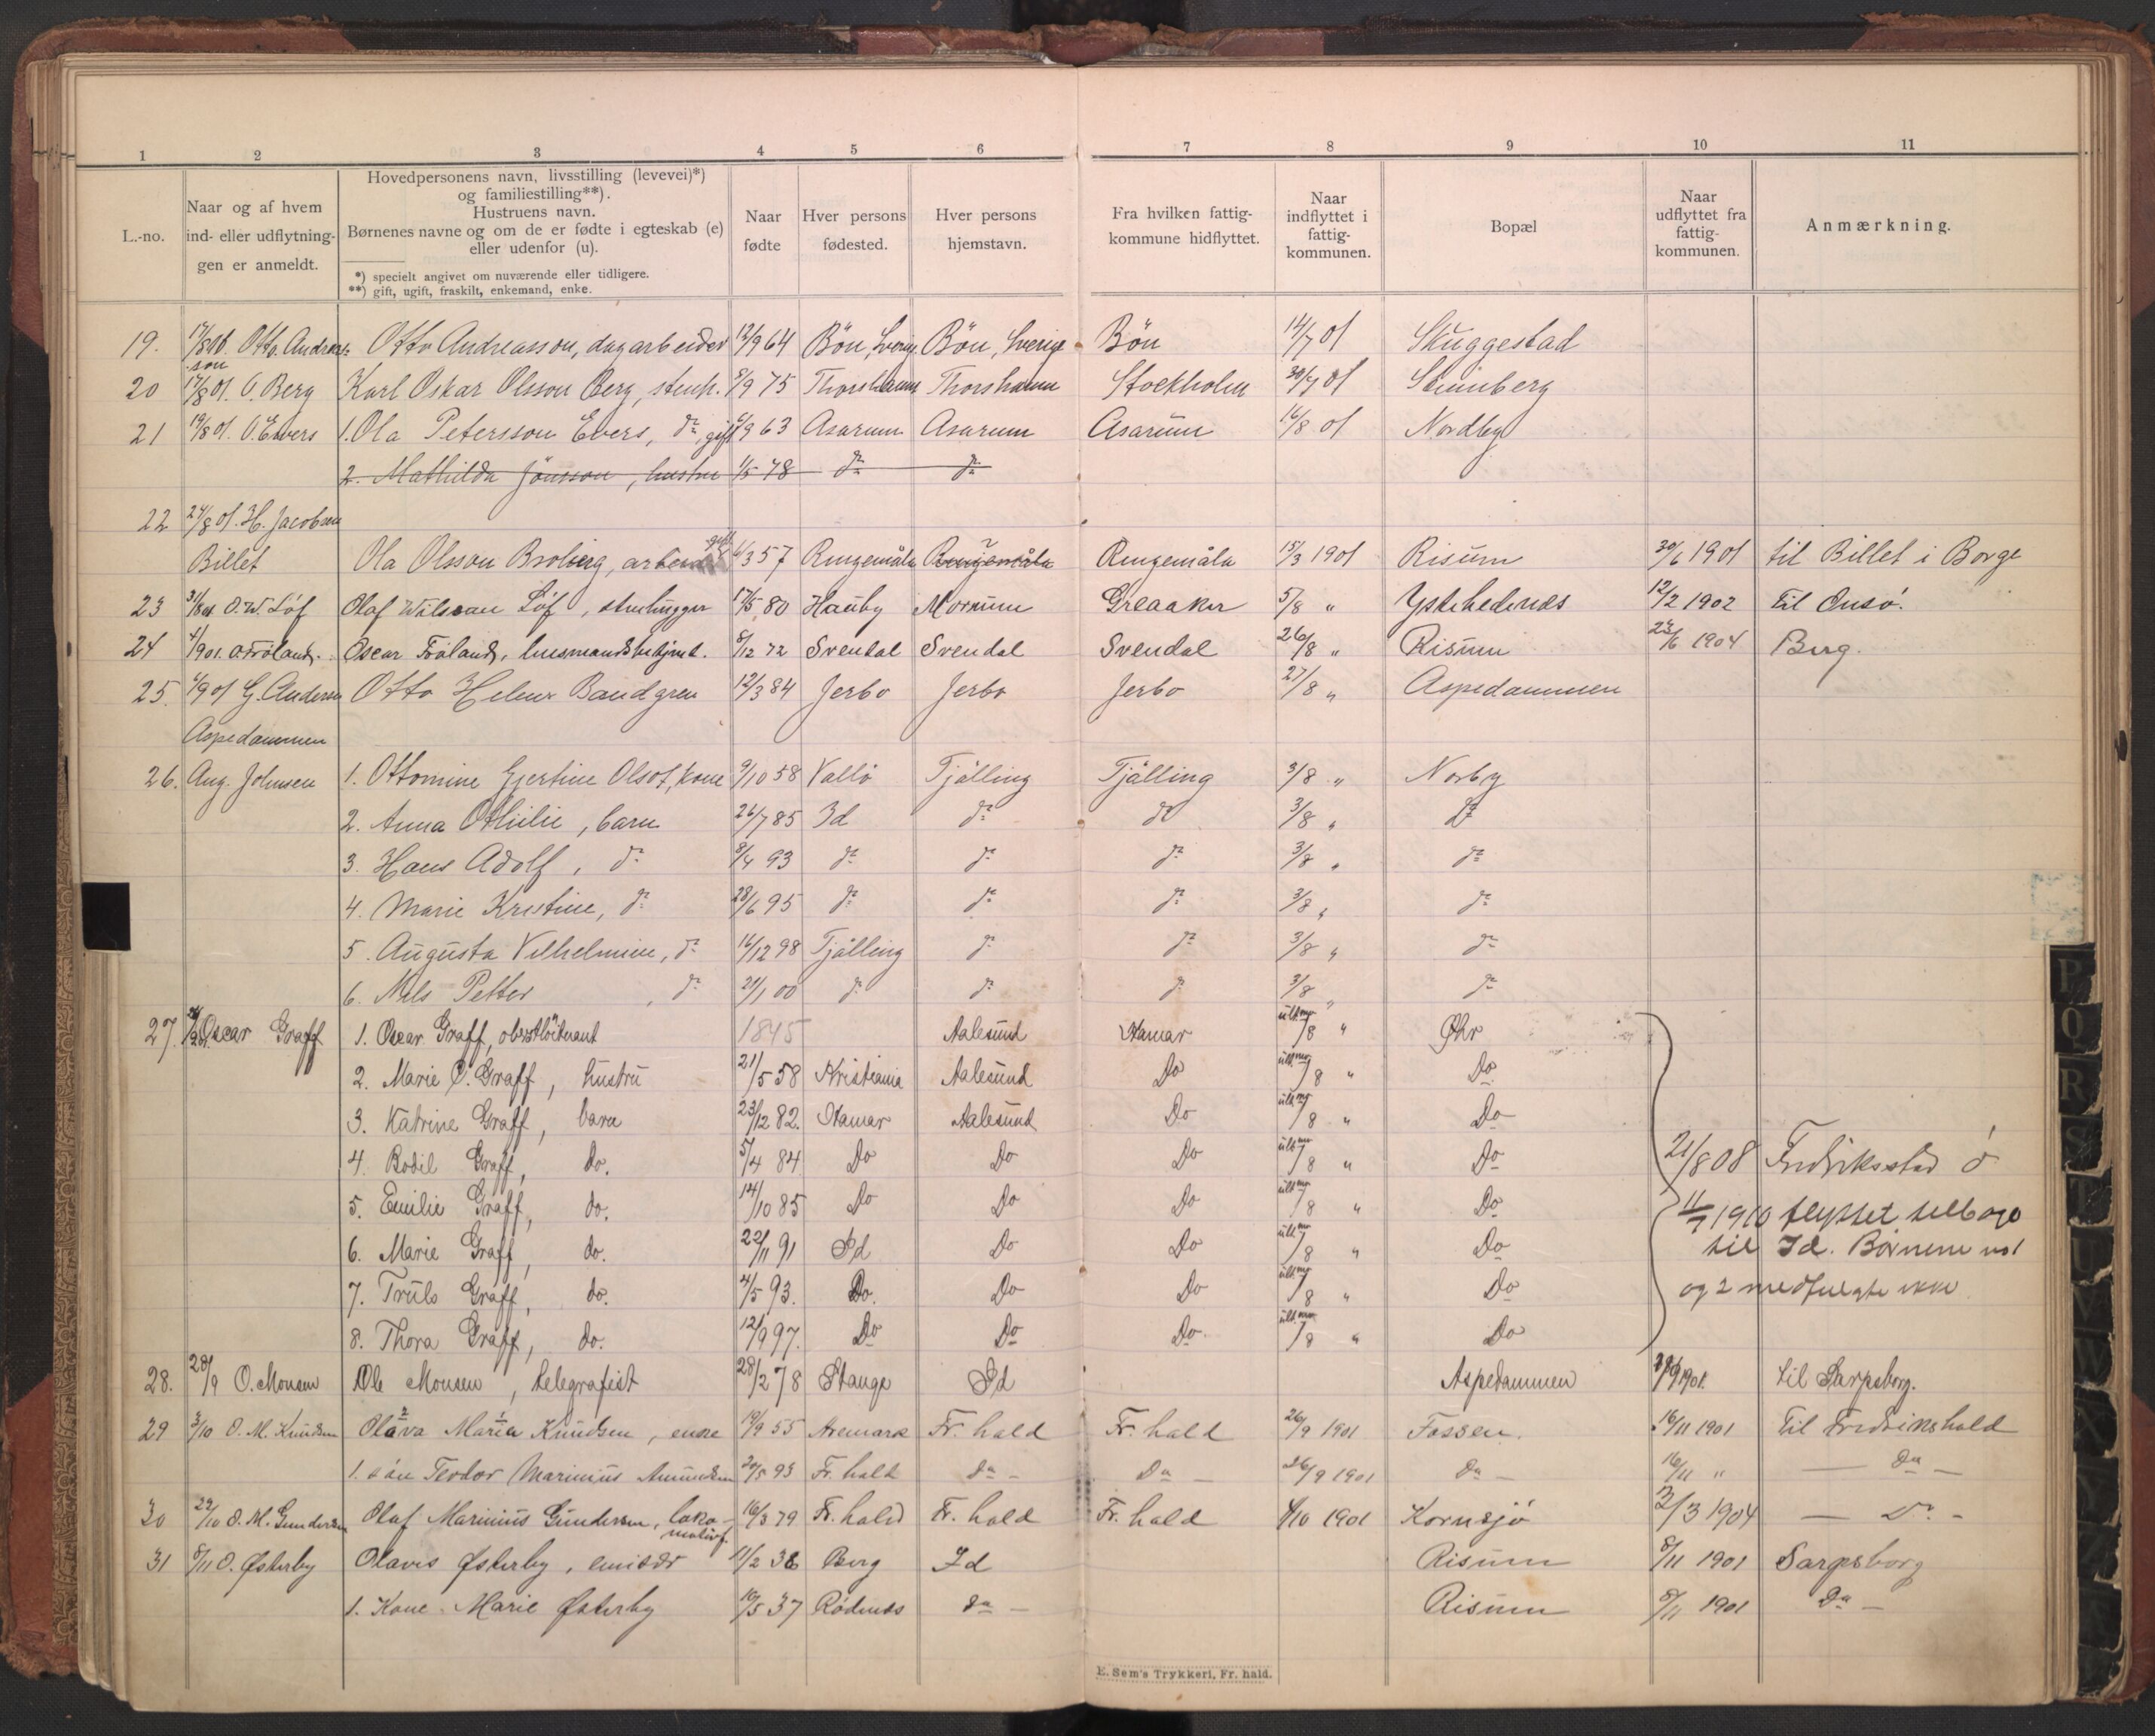 1 2 3 4 5 6 7 8 9 10 11
L.-no.
Naar og af hvem
ind- eller udflytnin-
gen er anmeldt.
Hovedpersonens navn, livsstilling (levevei)*)
og familiestilling**).
Hustruens navn.
Børnenes navne og om de er fødte i egteskab (e)
eller udenfor (u).
*) specielt angivet om nuværende eller tidligere.
**) gift, ugift, fraskilt, enkemand, enke.
Naar
fødte
Hver persons
fødested.
Hver persons
hjemstavn.
Fra hvilken fattig-
kommune hidflyttet.
Naar
indflyttet i
fattig-
kommunen.
Bopæl
Naar
udflyttet fra
fattig-
kommunen.
Anmærkning.
19. 17/8 01. Otto Andreas- Otto Andreasson, dagarbeider 12/9 64 Bön, Sverige Bön, Sverige Bön 14/7 01 Skuggestad
son
20 17/8 01. O. Berg Karl Oskar Olsson Berg, stenh. 8/9 75 Thorshamn Thorshamn Stockholm 30/7 01 Stenberg
21 19/8 01. O. Evers 1. Ola Petersson Evers, do, gift 6/9 63 Asarum Asarum Asarum 16/8 01 Nordby
2. Mathilda Jönsson, hustru 1/5 78 do do
22 24/8 01. H. Jacobsen
Billet Ola Olsson Broberg, arbeider gift 6/3 57 Ringemåla Ringemåla ? Ringemåla 15/3 1901 Risum 30/6 1901 til Billet i Borge
23 31/8 01. O. W. Löf Olaf Wilsson Löf, stenhugger 17/5 80 Hauby Morrum Greaaker 5/8 " Ystehedenes 12/2 1902 til Onsö.
24 4/9 01. O. Fröland. Oscar Fröland, husmandsbetjent. 8/12 72 Svendal Svendal Svendal 26/8 " Risum 23/6 1904 Berg.
25. 4/9 01 G. Andersen Otto Helmer Bandgren 12/3 84 Jerbo Jerbo Jerbo 27/8 " Aspedammen
Aspedammen
26. Aug. Johnsen 1. Ottomine Gjertine Olsdt, kone 9/10 58 Vallö Tjölling Tjölling 3/8 " Norby
2. Anna Othilie, barn 26/7 85 Id do do 3/8 " do
3. Hans Adolf, do 8/4 93 do do do 3/8 " do
4. Marie Kristine, do 28/6 95 do do do 3/8 " do
5. Augusta Vilhelmine, do 16/12 98 Tjölling do do 3/8 " do
6. Nils Petter, do 21/1 00 do do do 3/8 " do
27. Oscar Graff 1. Oscar Graff, oberstlöitnant 1845 Aalesund Hamar ult. 7/8 " Øhr
2. Marie C. Graff, hustru 21/5 58 Kristiania Aalesund Do 7/8 " Do
3. Katrine Graff, barn 23/12 82. Hamar Aalesund Do 7/8 " Do
4. Bodil Graff, do. 5/4 84 Do Do Do 7/8 " Do 21/8 08 Fredriksstad ö
5. Emilie Graff, do. 14/10 85 Do Do Do 7/8 " Do
11/7 1910 flyttet tilbage
6. Marie Graff, do. 22/11 91 Id Do Do 7/8 " Do
til Id. Børnene no 1
7. Truls Graff, do. 4/5 93. Do. Do Do 7/8 " Do
og 2 medfulgte ikke
8. Thora Graff, do. 12/9 97. Do Do Do. 7/8 " Do
28. 28/9 O. Monsen Ole Monsen, telegrafist 28/2 78 Stange Id Aspedammen 1901. til Sarpsborg.
29 3/10 O. M. Knudsen Olava Maria Knudsen, enke 19/9 55 Aremark Fr. hald Fr. hald 26/9 1901 Fossen. 16/11 1901 Til Fredrikshald
1. sön Teodor Marinius Amundsen 20/5 93 Fr. hald do - Do - 26/9 1901 do - 16/11 " - Do -
30 22/10 O. M. Gundersen Olaf Marinius Gundersen, loko- 16/3 79 Fr. hald Fr. hald Fr. hald 4/10 1901 Kornsjö 2/3 1904 - Do -
motivf.
31 8/11 O. Østerby Olavis Østerby, emisær 11/2 38 Berg Id Risum 8/11 1901 Sarpsborg
1. Kone Marie Østerby 10/5 37 Rödenes do - Risum 8/11 1901 Do -
E. Sem's Trykkeri, Fr. hald.
P
Q
R
S
T
U